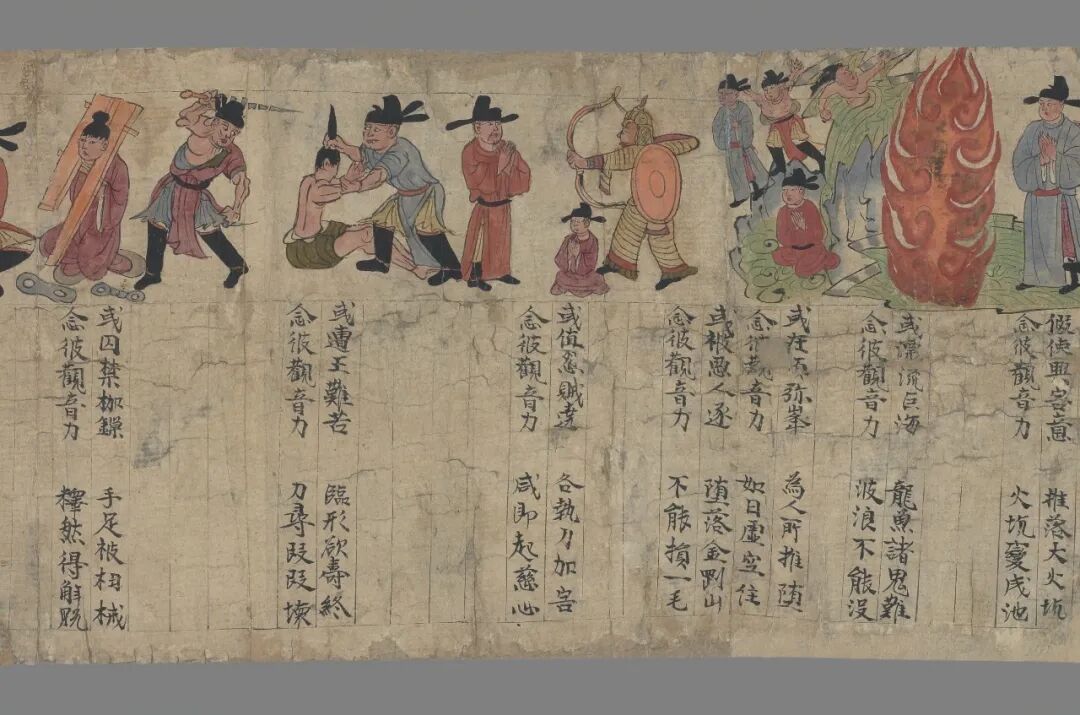 假使興害意 推落大火坑
念彼觀音力 火坑變成池
或漂流巨海 龍魚諸鬼難
念彼觀音力 波浪不能没
或在弥峯 為人所推堕
念彼觀音力 如日虛空住
或被惡人逐 堕落金剛山
念彼觀音力 不能損一毛
或值怨賊遶 各執刀加害
念彼觀音力 咸即起慈心
或遭王難苦 臨形欲壽終
念彼觀音力 刀尋段段壞
或囚禁枷鏁 手足被杻械
念彼觀音力 釋然得解脫